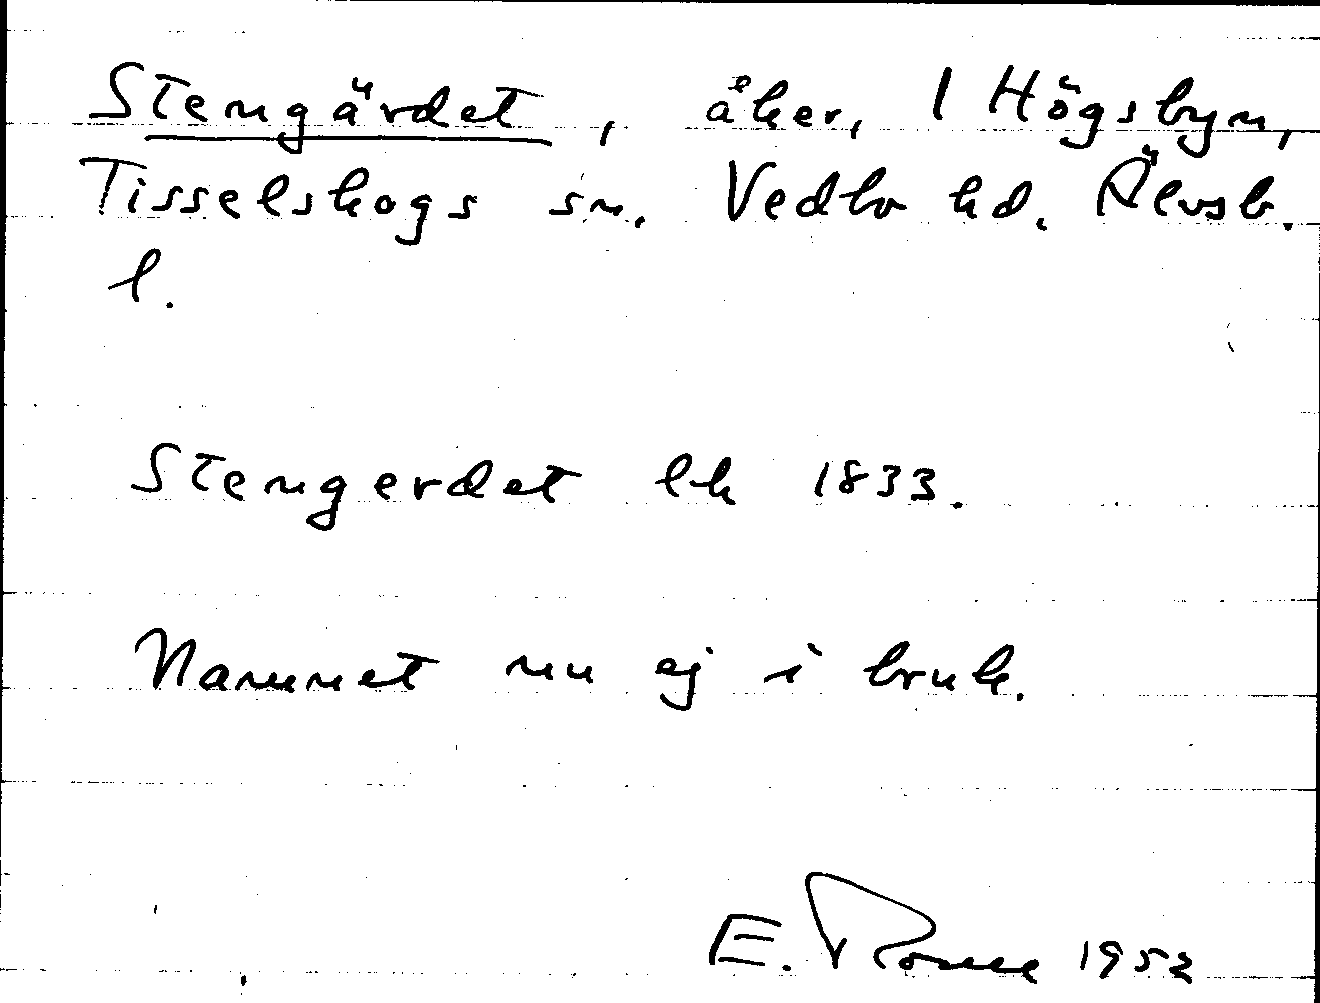 Stengärdet, åker, 1 Högsbyn,
Tisselskogs sn. Vedbo hd. Älvsb.
l.
Stengerdet lk 1833.
Namnet nu ej i bruk.
E. 1952